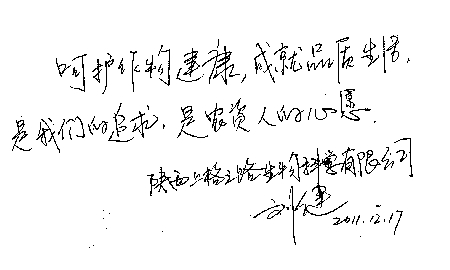 呵护作物健康,成就品质生活,
是我们的追求,是农资人的心愿.
陕西上格之路生物科学有限公司
刘健
2011.12.17